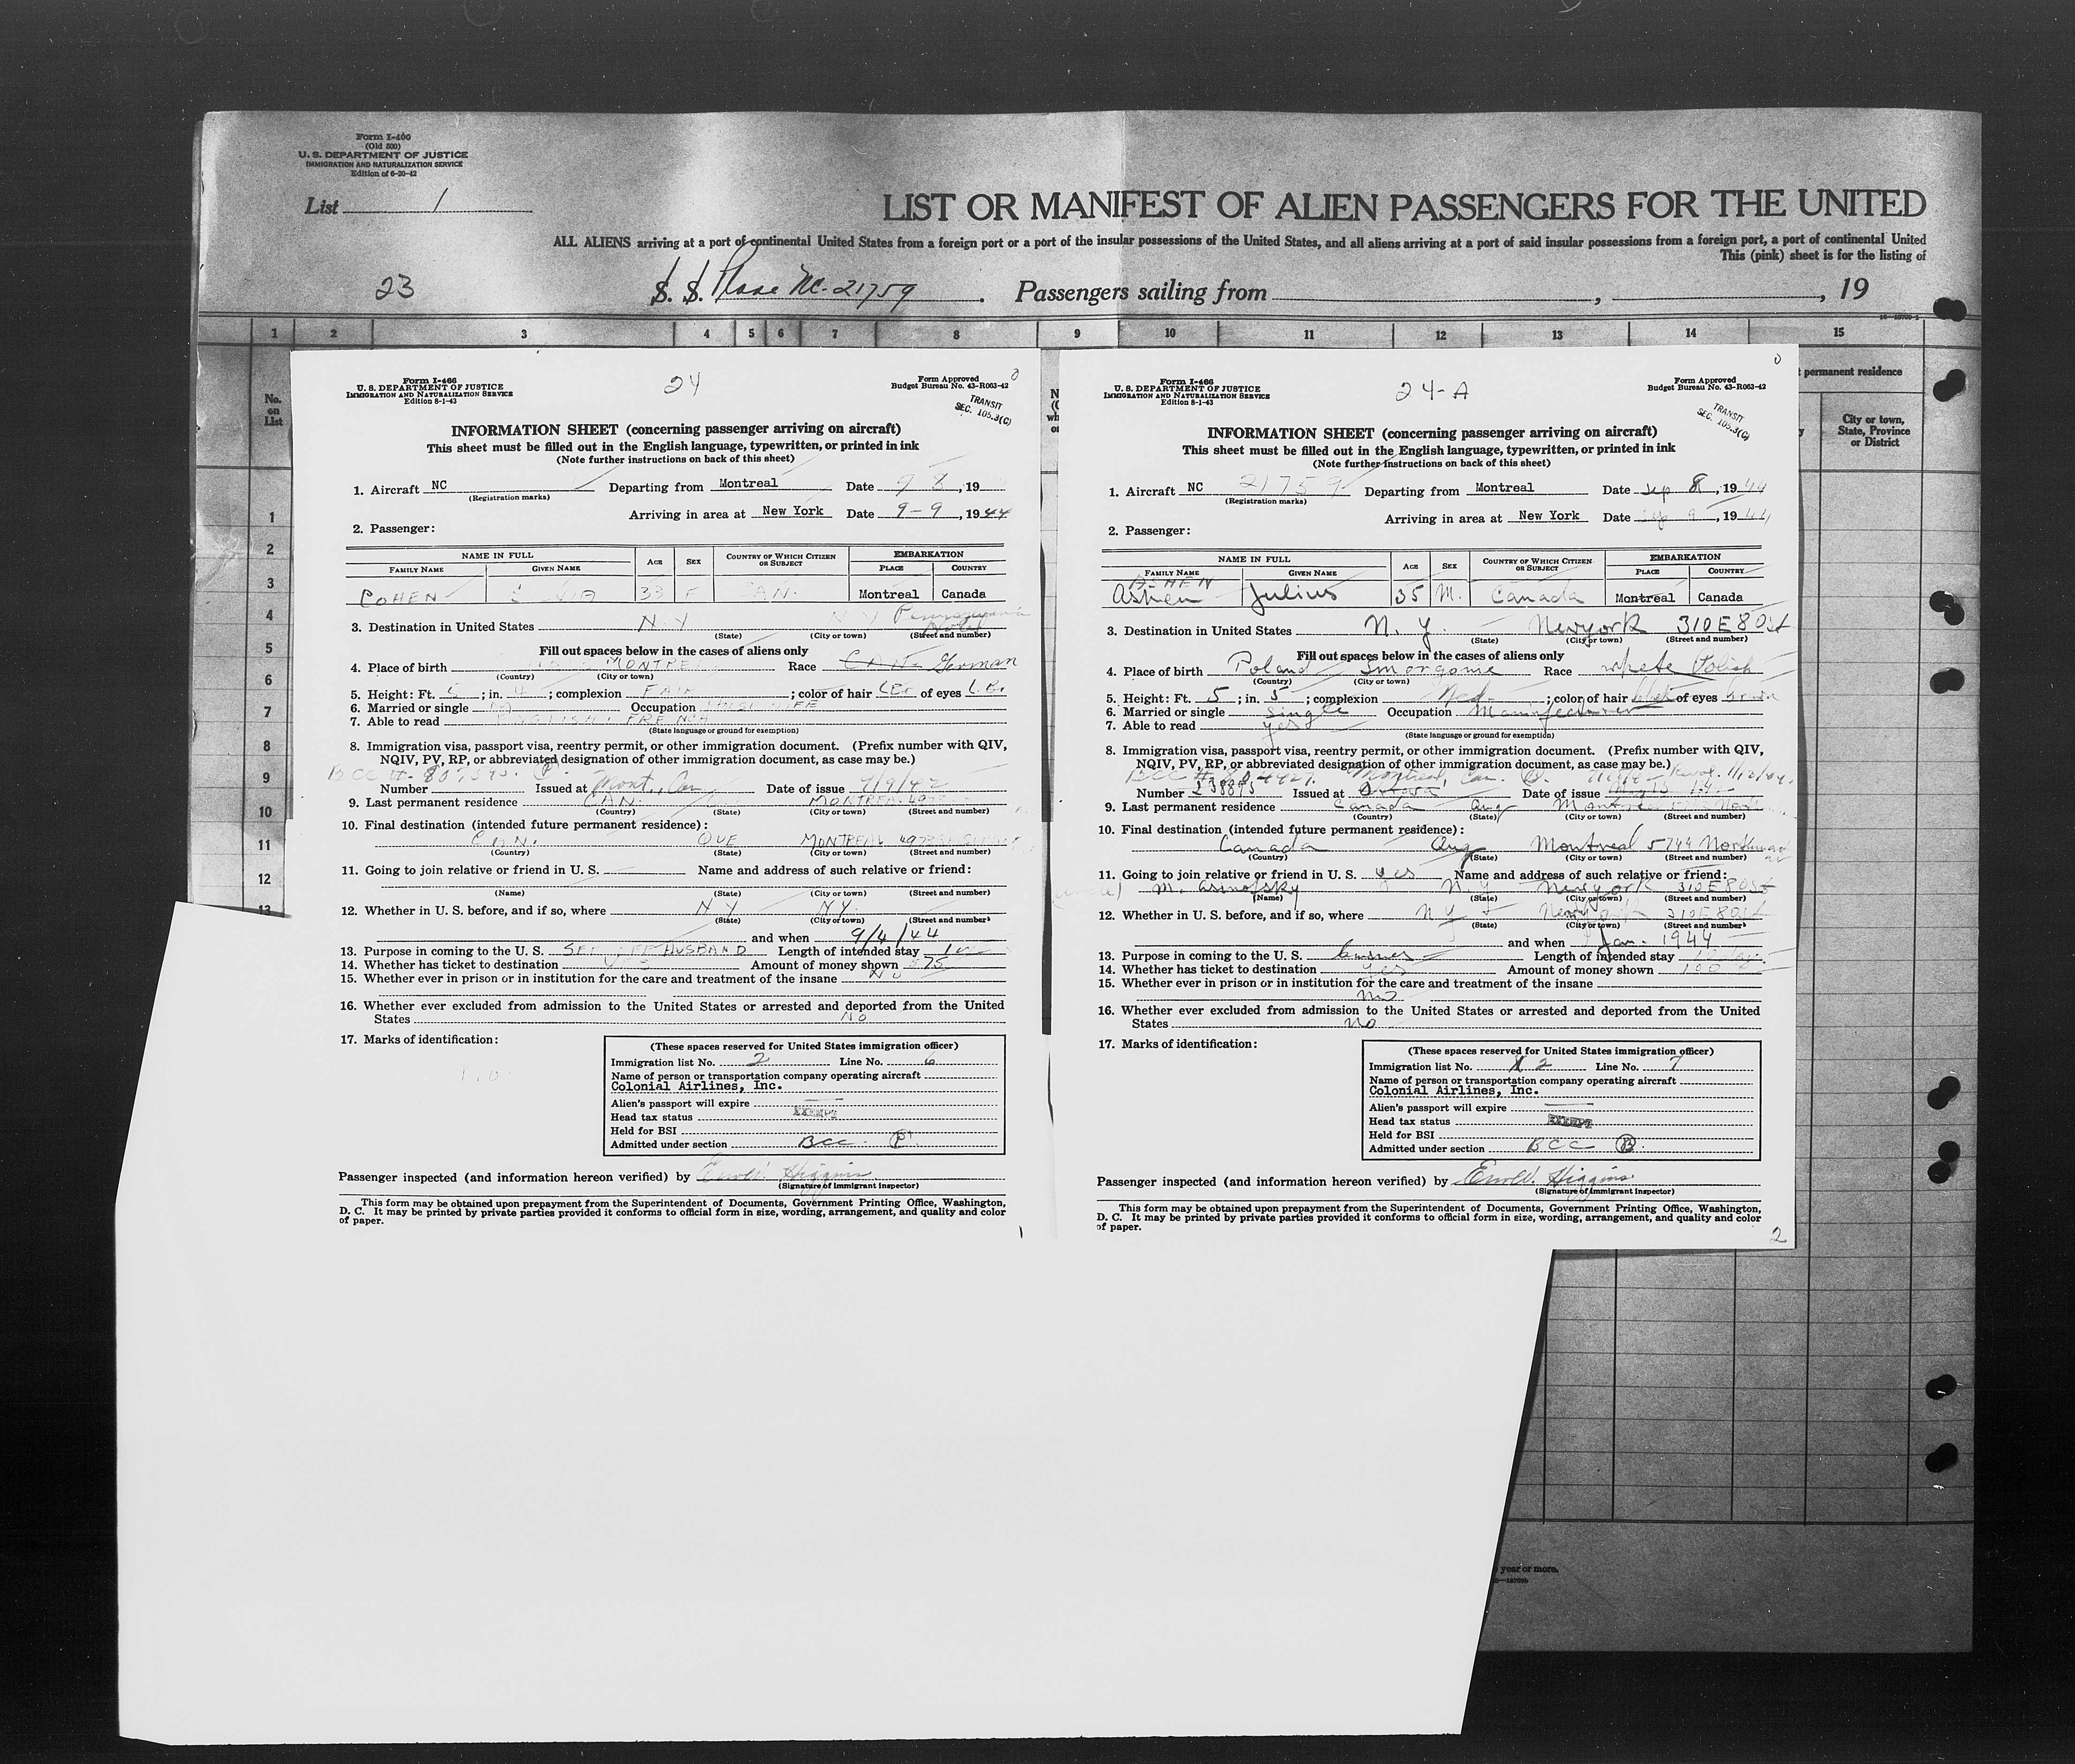 Form I-460
(Old 500)
U. S. DEPARTMENT OF JUSTICE
IMMIGRATION AND NATURALIZATION SERVICE
Edition of 6-20-42
List 1
LIST OR MANIFEST OF ALIEN PASSENGERS FOR THE UNITED
ALL ALIENS arriving at a port of continental United States from a foreign port or a port of the insular possessions of the United States, and all aliens arriving at a port of said insular possessions from a foreign port, a port of continental United
This (pink) sheet is for the listing of
23 S. S. Plane NC-21759. Passengers sailing from , , 19
1 2 3 4 5 6 7 8 9 10 11 12 13 14 15
No.
on
List
permanent residence
City or town,
State, Province
or District
1
2
3
4
5
6
7
8
9
10
11
12
13
Form I-466
U. S. DEPARTMENT OF JUSTICE
IMMIGRATION AND NATURALIZATION SERVICE
Edition 8-1-43
24
Form Approved
Budget Bureau No. 43-R063-42
TRANSIT
SEC. 105.3(C)
INFORMATION SHEET (concerning passenger arriving on aircraft)
This sheet must be filled out in the English language, typewritten, or printed in ink
(Note further instructions on back of this sheet)
1. Aircraft NC Departing from Montreal Date 9 8, 19
(Registration marks)
Arriving in area at New York Date 9-9, 1944
2. Passenger:
NAME IN FULL AGE SEX COUNTRY OF WHICH CITIZEN OR SUBJECT EMBARKATION
FAMILY NAME GIVEN NAME PLACE COUNTRY
COHEN 33 F CAN. Montreal Canada
3. Destination in United States N Y N Y Pennsylvania Hotel
(State) (City or town) (Street and number)
Fill out spaces below in the cases of aliens only
4. Place of birth MONTREAL Race CAN. German
(Country) (City or town)
5. Height: Ft. 5; in. 4; complexion FAIR; color of hair of eyes
6. Married or single M Occupation HOUSEWIFE
7. Able to read ENGLISH, FRENCH
(State language or ground for exemption)
8. Immigration visa, passport visa, reentry permit, or other immigration document. (Prefix number with QIV,
NQIV, PV, RP, or abbreviated designation of other immigration document, as case may be.)
BCC #
Number Issued at Mont., Can Date of issue 7/9/42
9. Last permanent residence CAN. MONTREAL
(Country) (State) (City or town) (Street and number)
10. Final destination (intended future permanent residence):
CAN. QUE MONTREAL
(Country) (State) (City or town) (Street and number)
11. Going to join relative or friend in U. S. Name and address of such relative or friend:
(Name) (State) (City or town) (Street and number)
12. Whether in U. S. before, and if so, where N Y N.Y.
(State) (City or town) (Street and number)
and when 9/4/44
13. Purpose in coming to the U. S. SEE OFF HUSBAND Length of intended stay
14. Whether has ticket to destination YES Amount of money shown $75
15. Whether ever in prison or in institution for the care and treatment of the insane No
16. Whether ever excluded from admission to the United States or arrested and deported from the United
States NO
17. Marks of identification:
(These spaces reserved for United States immigration officer)
Immigration list No. 2 Line No. 6
Name of person or transportation company operating aircraft
Colonial Airlines, Inc.
Alien's passport will expire
Head tax status EXEMPT
Held for BSI
Admitted under section BCC.
Passenger inspected (and information hereon verified) by Higgins
(Signature of immigrant inspector)
This form may be obtained upon prepayment from the Superintendent of Documents, Government Printing Office, Washington,
D. C. It may be printed by private parties provided it conforms to official form in size, wording, arrangement, and quality and color
of paper.
1
Form I-466
U. S. DEPARTMENT OF JUSTICE
IMMIGRATION AND NATURALIZATION SERVICE
Edition 8-1-43
24-A
Form Approved
Budget Bureau No. 43-R063-42
TRANSIT
SEC. 105.3(C)
INFORMATION SHEET (concerning passenger arriving on aircraft)
This sheet must be filled out in the English language, typewritten, or printed in ink
(Note further instructions on back of this sheet)
1. Aircraft NC 21759 Departing from Montreal Date Sep 8, 1944
(Registration marks)
Arriving in area at New York Date Sep 9, 1944
2. Passenger:
NAME IN FULL AGE SEX COUNTRY OF WHICH CITIZEN OR SUBJECT EMBARKATION
FAMILY NAME GIVEN NAME PLACE COUNTRY
ASHEN
Ashen Julius 35 M. Canada Montreal Canada
3. Destination in United States N. Y. New york 310 E 80 St
(State) (City or town) (Street and number)
Fill out spaces below in the cases of aliens only
4. Place of birth Poland Smorgonie Race white Polish
(Country) (City or town)
5. Height: Ft. 5; in. 5; complexion Med.; color of hair black of eyes brown
6. Married or single Single Occupation Manufacturer
7. Able to read yes
(State language or ground for exemption)
8. Immigration visa, passport visa, reentry permit, or other immigration document. (Prefix number with QIV,
NQIV, PV, RP, or abbreviated designation of other immigration document, as case may be.)
BCC # Montreal, Can.
Number 238895 Issued at Ottawa Date of issue
9. Last permanent residence Canada Que Montreal
(Country) (State) (City or town) (Street and number)
10. Final destination (intended future permanent residence):
Canada Que Montreal 5744 Northmount
(Country) (State) (City or town) (Street and number)
11. Going to join relative or friend in U. S. yes Name and address of such relative or friend:
(uncle) M. Asinofsky N.Y New york 310 E 80 St
(Name) (State) (City or town) (Street and number)
12. Whether in U. S. before, and if so, where N Y New York 310 E 80 St
(State) (City or town) (Street and number)
and when Jan. 1944
13. Purpose in coming to the U. S. business Length of intended stay
14. Whether has ticket to destination yes Amount of money shown 100
15. Whether ever in prison or in institution for the care and treatment of the insane
no
16. Whether ever excluded from admission to the United States or arrested and deported from the United
States no
17. Marks of identification:
(These spaces reserved for United States immigration officer)
Immigration list No. 2 Line No. 7
Name of person or transportation company operating aircraft
Colonial Airlines, Inc.
Alien's passport will expire
Head tax status EXEMPT
Held for BSI
Admitted under section BCC B.
Passenger inspected (and information hereon verified) by Higgins
(Signature of immigrant inspector)
This form may be obtained upon prepayment from the Superintendent of Documents, Government Printing Office, Washington,
D. C. It may be printed by private parties provided it conforms to official form in size, wording, arrangement, and quality and color
of paper.
2
year or more.